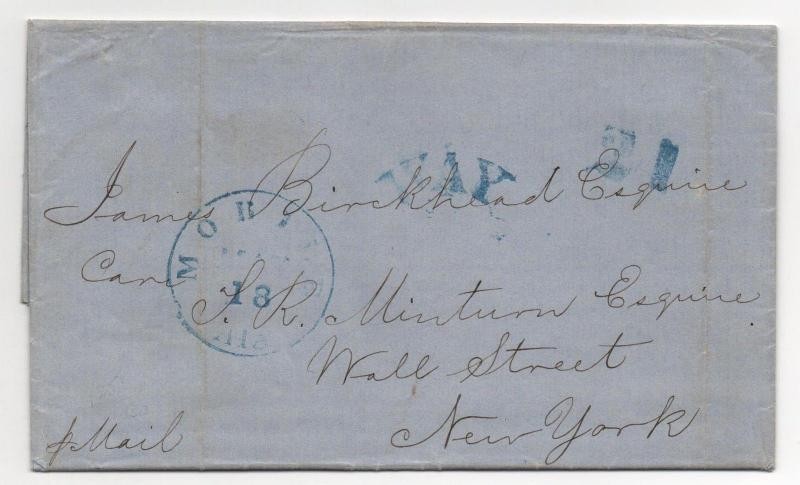 WAY 21
James Birckhead Esquire
MOBI
18
Care J. R. Minturn Esquire
Wall Street
New York
p Mail